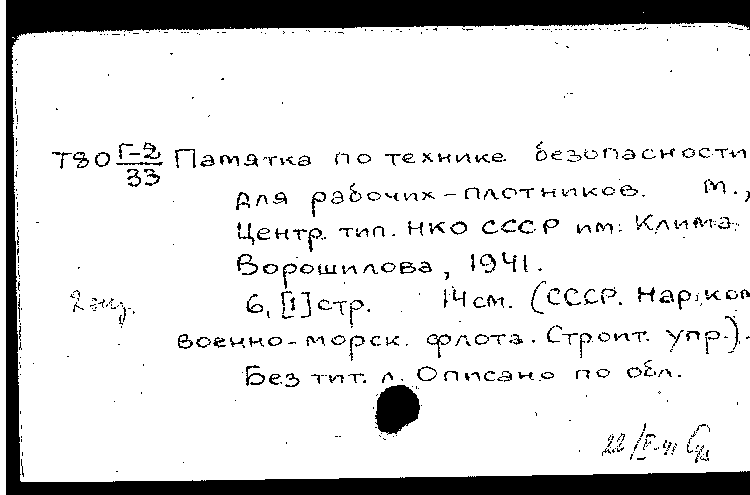 Т80 Г-2/33 Памятка по технике безопасности
для рабочих-плотников. М.,
Центр. тип. НКО СССР им. Клима
Ворошилова, 1941.
2 экз. 6, [1] стр. 14 см. (СССР. Нар. ком.
военно-морск. флота. Строит. упр.).
Без тит. л. Описано по обл.
22/V-41